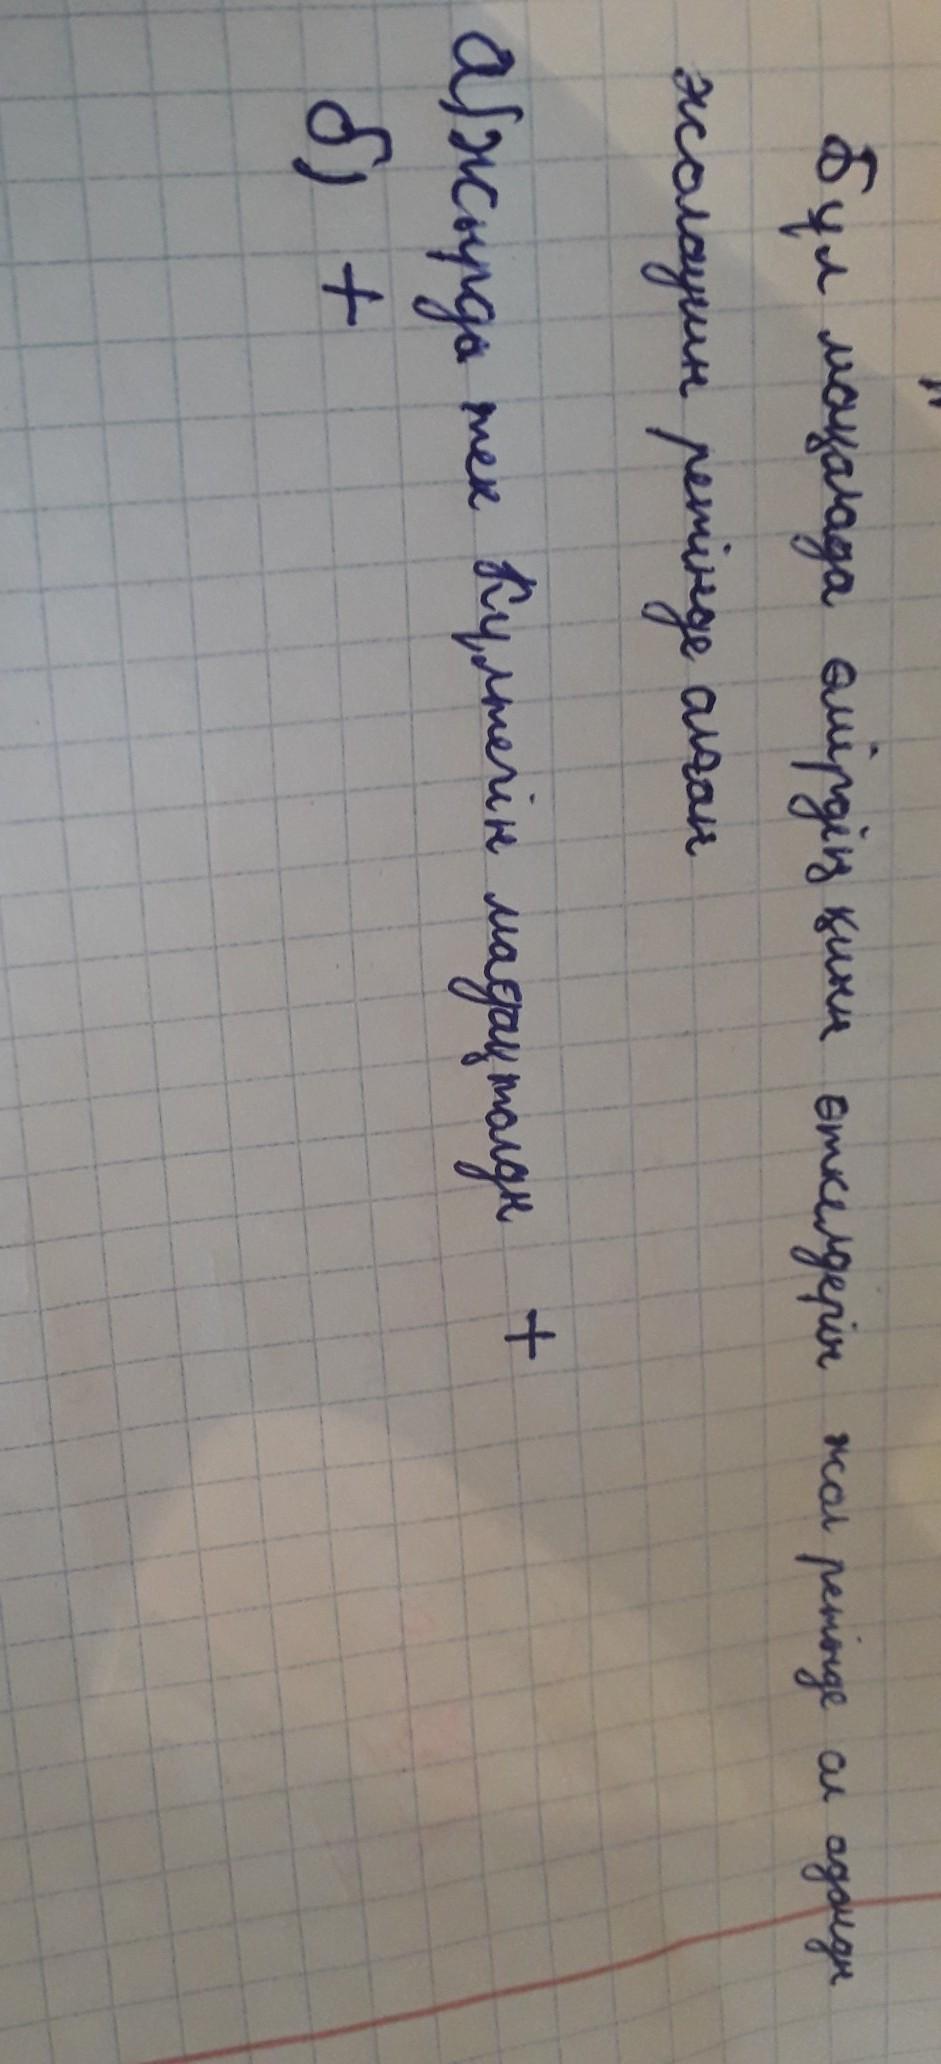 Бұл мақалада өмірдің қиын өткелдерін жол ретінде ал адамды
жолаушы ретінде алған
а) Жырда тек Күлтегін мадақталды +
б) +